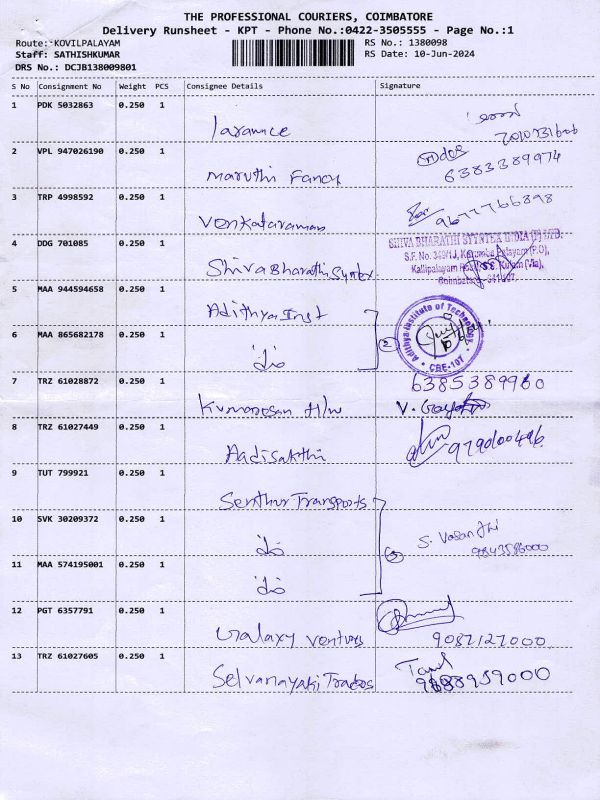 THE PROFESSIONAL COURIERS, COIMBATORE
Delivery Runsheet - KPT - Phone No.:0422-3505555 - Page No.:1
Route: KOVILPALAYAM RS No.: 1380098
Staff: SATHISHKUMAR RS Date: 10-Jun-2024
DRS No.: DCJB138009801
S No Consignment No Weight PCS Consignee Details Signature
1 PDK 5032863 0.250 1
2 VPL 947026190 0.250 1 Maruthi Fancy 6383389974
3 TRP 4998592 0.250 1 Venkataraman 9677766898
4 DDG 701085 0.250 1 Shiva Bharathi Syntex
SHIVA BHARATHI SYNTEX INDIA (P) LTD.
S.F. No. 349/1J, Kurumba Palayam (P.O),
5 MAA 944594658 0.250 1 Adithya Inst
Adithya Institute of Technology
CBE-107
6 MAA 865682178 0.250 1 do 2
7 TRZ 61028872 0.250 1 Kumaresan H/w 6385389960
8 TRZ 61027449 0.250 1 Aadisakthi 9790600496
9 TUT 799921 0.250 1 Senthur Transports
10 SVK 30209372 0.250 1 do 3 S. Vasanthi
9843586000
11 MAA 574195001 0.250 1 do
12 PGT 6357791 0.250 1 Galaxy ventures 9087127000
13 TRZ 61027605 0.250 1 Selvanayaki Traders Tamil
9688959000